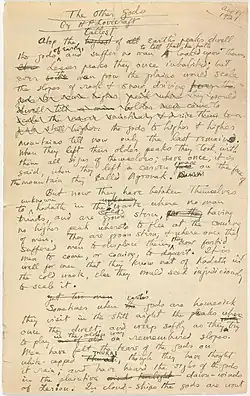 The Other Gods
by H P Lovecraft
Aug 14
1921
Atop the of earth's peaks dwell
the gods of earth, and suffer no man to tell that he hath
looked upon them.
peaks they once inhabited; but
ever men from the plains would scale
the slopes of rock & snow, driving
the gods to higher & higher
mountains till now only the last remains.
When they left their older peaks they took with
them all signs of themselves; save once, it is
said, when they left a carven image on the face of
the mountain they called Ngranek.
But now they have betaken themselves
to unknown Kadath in the cold waste where no man
treads, and are grown stern, having
no higher peak whereto to flee at the coming
of men. They are grown stern, & where once they
suffered men to displace them, they now forbid
men to come, or coming, to depart. It is
well for men that they know not of Kadath in
the cold waste, else they would seek injudiciously
to scale it.
Sometimes when earth's gods are homesick
they visit in the still night the peaks where
once they dwelt, and weep softly as they try
to play in the olden way on remembered slopes.
Men have felt the tears of the gods on
white-capped Thurai, though they have thought
it rain; and have heard the sighs of the gods
in the plaintive dawn-winds
of Lerion. In cloud-ships the gods are wont